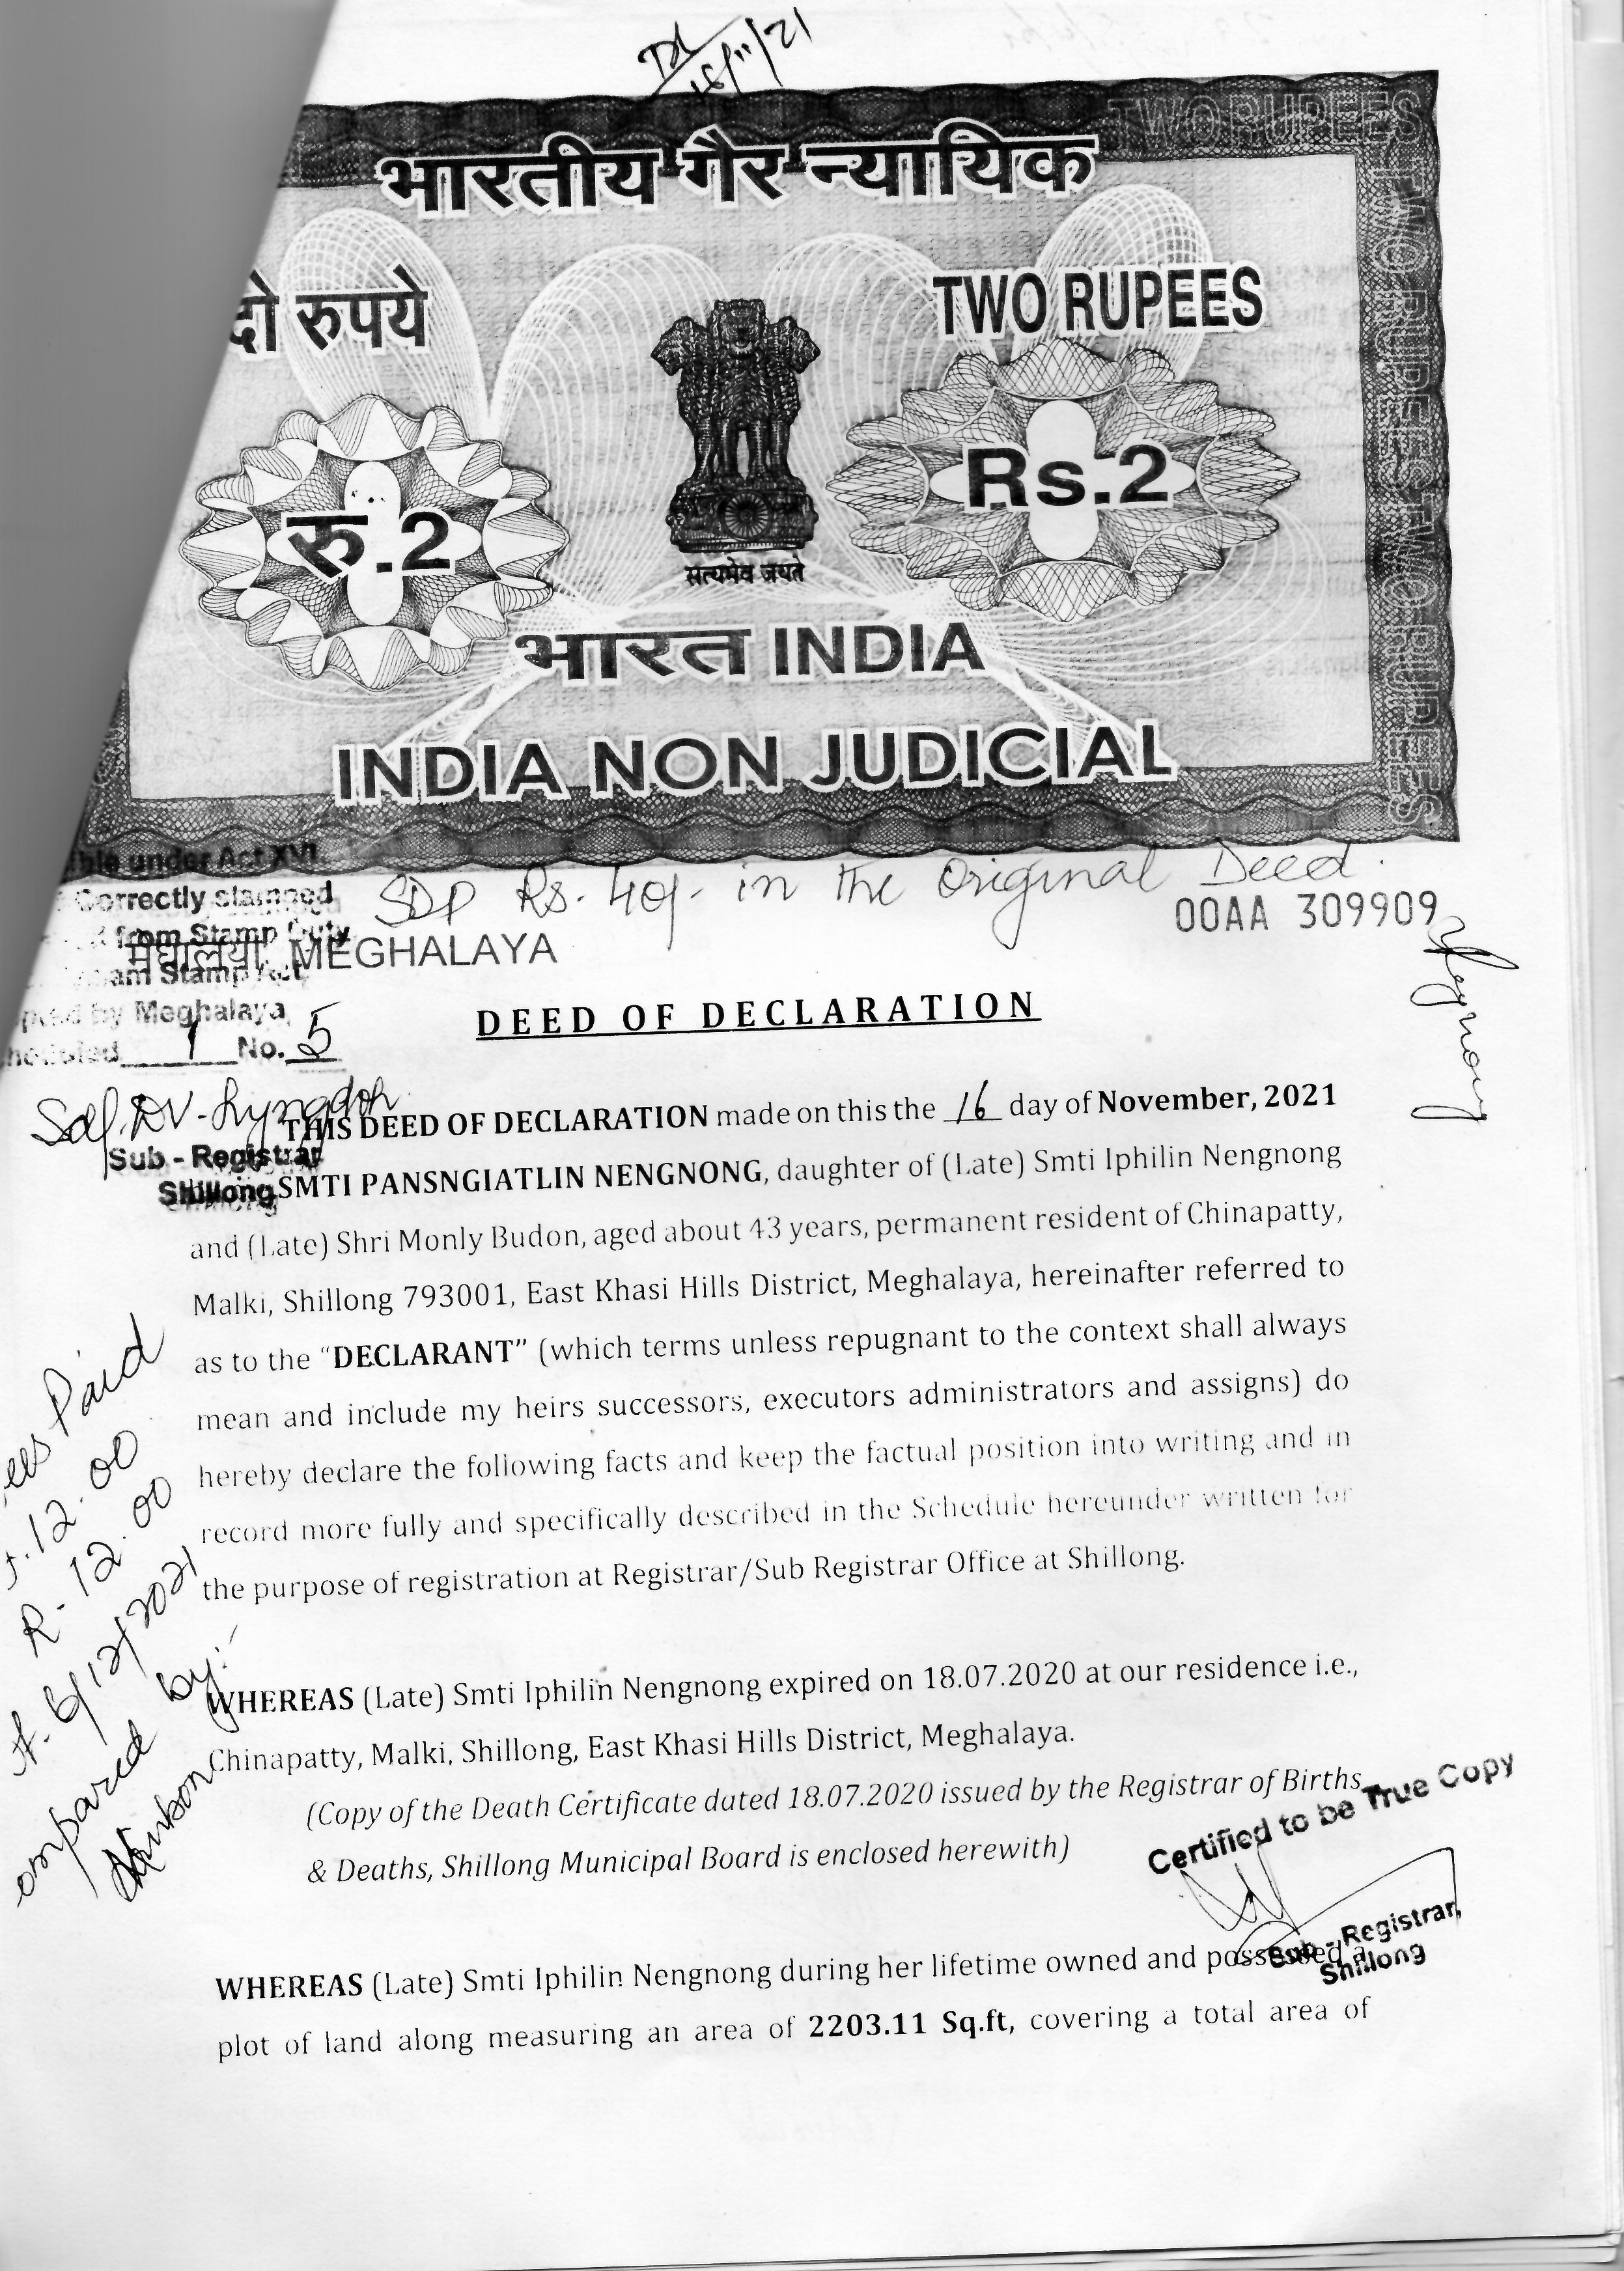 16/11/21
TWO RUPEES
भारतीय गैर न्यायिक
दो रुपये
TWO RUPEES
रु.2
Rs.2
सत्यमेव जयते
भारत INDIA
INDIA NON JUDICIAL
TWO RUPEES TWO RUPEES TWO RUPEES
under Act XVI
Correctly stamped
from Stamp Duty
Stamp Act
by Meghalaya,
1 No. 5
SDP Rs. 40/- in the Original Deed.
00AA 309909
मेघालय MEGHALAYA
DEED OF DECLARATION
Sd/. DV-Lyngdoh
Sub - Registrar
Shillong
THIS DEED OF DECLARATION made on this the 16 day of November, 2021
SMTI PANSNGIATLIN NENGNONG, daughter of (Late) Smti Iphilin Nengnong
and (Late) Shri Monly Budon, aged about 43 years, permanent resident of Chinapatty,
Malki, Shillong 793001, East Khasi Hills District, Meghalaya, hereinafter referred to
as to the “DECLARANT” (which terms unless repugnant to the context shall always
mean and include my heirs successors, executors administrators and assigns) do
hereby declare the following facts and keep the factual position into writing and in
record more fully and specifically described in the Schedule hereunder written for
the purpose of registration at Registrar/Sub Registrar Office at Shillong.
Paid
12.00
R-12.00
6/12/2021
by:-
WHEREAS (Late) Smti Iphilin Nengnong expired on 18.07.2020 at our residence i.e.,
Chinapatty, Malki, Shillong, East Khasi Hills District, Meghalaya.
(Copy of the Death Certificate dated 18.07.2020 issued by the Registrar of Births
& Deaths, Shillong Municipal Board is enclosed herewith)
Certified to be True Copy
Sub - Registrar,
Shillong
WHEREAS (Late) Smti Iphilin Nengnong during her lifetime owned and possessed a
plot of land along measuring an area of 2203.11 Sq.ft, covering a total area of